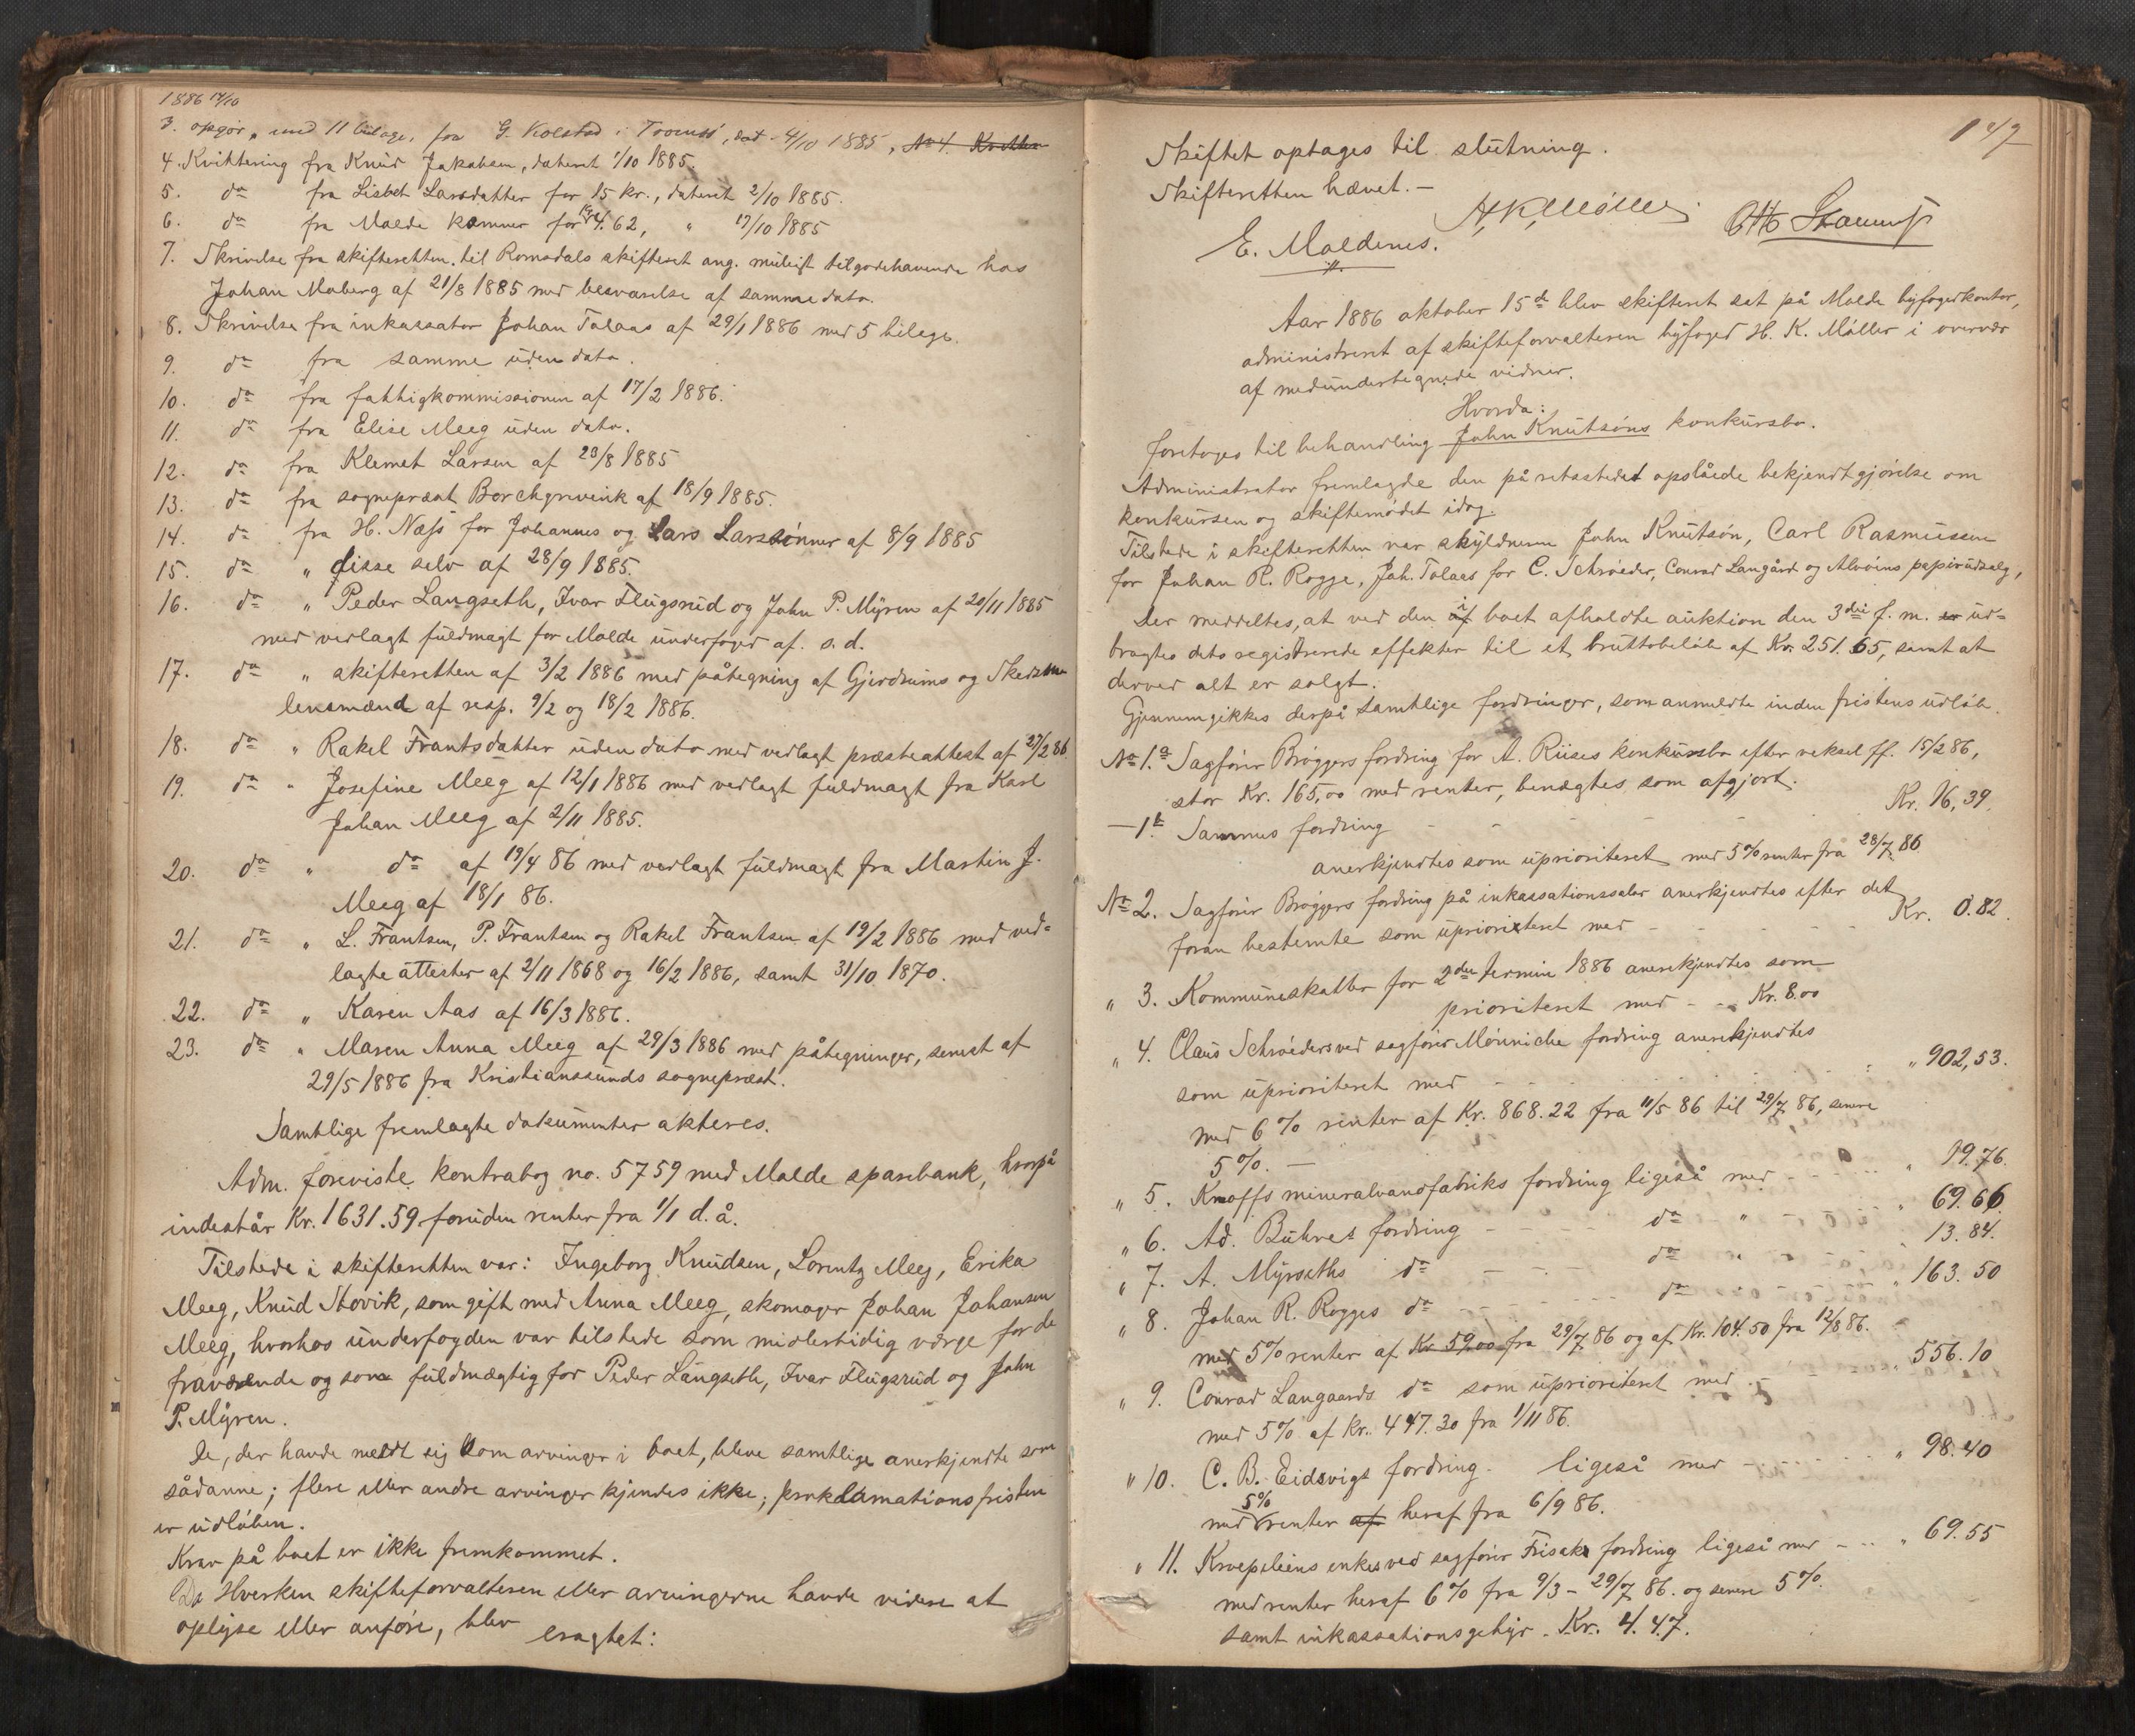 1886 14/10
3. opgør, med 11 bilage, fra G. Kolstad i Tromsø, dat. 4/10 1885, No 4. Kvitter
4. Kvittering fra Knud Jakobsen, dateret 1/10 1885.
5. do fra Lisbet Larsdatter for 15 kr., dateret 2/10 1885.
6. do fra Molde kemner for Kr. 4.62, " 17/10 1885
7. Skrivelse fra skifteretten til Romsdals skifteret ang. muligt tilgodehavende hos
Johan Moberg af 21/8 1885 med besvarelse af samme dato.
8. Skrivelse fra inkassator Johan Tolaas af 29/1 1886 med 5 bilage.
9. do fra samme uden dato.
10. do fra fattigkommissionen af 17/2 1886.
11. do fra Elise Meeg uden dato.
12. do fra Klemet Larsen af 23/8 1885
13. do fra sogneprest Borchgrevink af 18/9 1885.
14. do fra H. Næss for Johannes og Lars Larssønner af 8/9 1885
15. do " disse selv af 28/9 1885.
16. do " Peder Langseth, Ivar Flugsrud og John P. Myren af 20/11 1885
med vedlagt fuldmagt for Molde underfoged af s. d.
17. do " skifteretten af 3/2 1886 med påtegning af Gjerdrums og Skedsmo
lensmænd af resp. 9/2 og 18/2 1886.
18. do " Rakel Frantsdatter uden dato med vedlagt præsteattest af 27/2 86.
19. do " Josefine Meeg af 12/1 1886 med vedlagt fuldmagt fra Karl
Johan Meeg af 2/11 1885.
20. do " do af 19/4 86 med vedlagt fuldmagt fra Martin J.
Meeg af 18/1 86.
21. do " L. Frantsen, P. Frantsen og Rakel Frantsen af 19/2 1886 med ved=
lagte attester af 2/11 1868 og 16/2 1886, samt 31/10 1870.
22. do " Karen Aas af 16/3 1886.
23. do " Maren Anna Meeg af 29/3 1886 med påtegninger, senest af
29/5 1886 fra Kristianssunds sogneprest.
Samtlige fremlagte dokumenter akteres.
Adm. foreviste kontrabog no. 5759 med Molde sparebank, hvorpå
indestår Kr. 1631.59 foruden renter fra 1/1 d. å.
Tilstede i skifteretten var: Ingeborg Knudsen, Lorentz Meeg, Erika
Meeg, Knud Stovik, som gift med Anna Meeg, skomager Johan Johansen
Meeg, hvorhos underfogden var tilstede som midlertidig værge for de
fraværende og som fuldmægtig for Peder Langseth, Ivar Flugsrud og John
P. Myren.
De, der havde meldt sig som arvinger i boet, bleve samtlige anerkjendte som
sådanne; flere eller andre arvinger kjendes ikke; proklamationsfristen
er udløben.
Krav på boet er ikke fremkommet.
Da Hverken skifteforvalteren eller arvingerne havde videre at
oplyse eller anføre, blev
eragtet:
147
Skiftet optages til slutning.
Skifteretten hævet. –
H. K. Møller
E. Moldenes. Otto
Aar 1886 oktober 15de blev skifteret sat på Molde byfogedkontor,
administreret af skifteforvalteren byfoged H. K. Møller i overvær
af medundertegnede vidner.
Hvorda:
foretoges til behandling John Knutsøns konkursbo.
Administrator fremlagde den på retsstedet opslåede bekjendtgjørelse om
konkursen og skiftemødet idag.
Tilstede i skifteretten var skyldneren John Knutsøn, Carl Rasmussen
for Johan R. Rogge, Joh. Tolaas for C. Schrøeder, Conrad Langård og Alvøens papirudsalg,
Der meddeltes, at ved den af i boet afholdte auktion den 3die f. m. er ud=
bragtes dets registrerede effekter til et bruttobeløb af Kr. 251.65, samt at
derved alt er solgt.
Gjennemgikkes derpå samtlige fordringer, som anmeldte inden fristens udløb.
No 1.a Sagfører Brøggers fordring for A. Riises konkursbo efter veksel ff. 15/2 86,
stor Kr. 165,00 med renter, benægtes som afgjort.
— 1.b Sammes fordring - - - - Kr. 16,39.
anerkjendtes som uprioriteret med 5% renter fra 28/7 86
No 2. Sagfører Brøggers fordring på inkassationssalær anerkjendtes efter det
foran bestemte som uprioriteret med - - - - Kr. 0.82.
" 3. Kommuneskatter for 2den termin 1886 anerkjendtes som
prioriteret med - - Kr. 8.00
" 4. Claus Schrøeders ved sagfører Mønniche fordring anerkjendtes
som uprioriteret med - - - - " 902,53.
med 6% renter af Kr. 868.22 fra 11/5 86 til 29/7 86, senere
5%. —
" 5. Knoffs mineralvandfabriks fordring ligeså med - - - " 19.76.
" 6. Ad. Buhres fordring - - - - do " - - - " 69.66.
" 7. A. Myrseths do - - - - do " - - - " 13.84.
" 8. Johan R. Rogges do - - - - do - - - " 163.50
med 5% renter af Kr 59.00 fra 29/7 86 og af Kr. 104.50 fra 12/8 86.
" 9. Conrad Langaards do som uprioriteret med - - - " 556.10
med 5% af Kr. 447.30 fra 1/11 86.
" 10. C. B. Eidsvigs fordring ligeså med - - - - " 98.40
med 5% renter af heraf fra 6/9 86.
" 11. Kroepeliens enkes ved sagfører Frisaks fordring ligeså med - - - " 69.55
med renter heraf 6% fra 9/3 - 29/7 86. og senere 5%
samt inkassationsgebyr. Kr. 4.47.